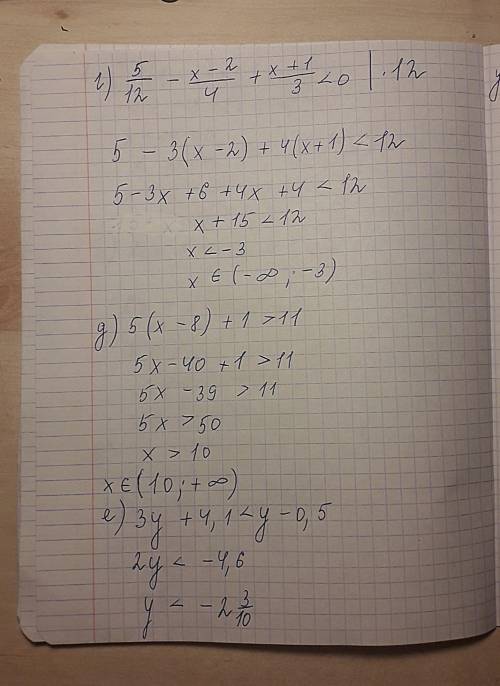 г) 5/12 - x-2/4 + x+1/3 <0 | ·12
5 - 3(x-2) + 4(x+1) < 12
5-3x +6 +4x +4 < 12
x + 15 < 12
x < -3
x ∈ (-∞ ; -3)
д) 5(x-8) +1 >11
5x-40 +1 >11
5x -39 >11
5x >50
x > 10
x ∈ (10 ; +∞)
е) 3y +4,1 < y -0,5
2y < -4,6
y < -2 3/10